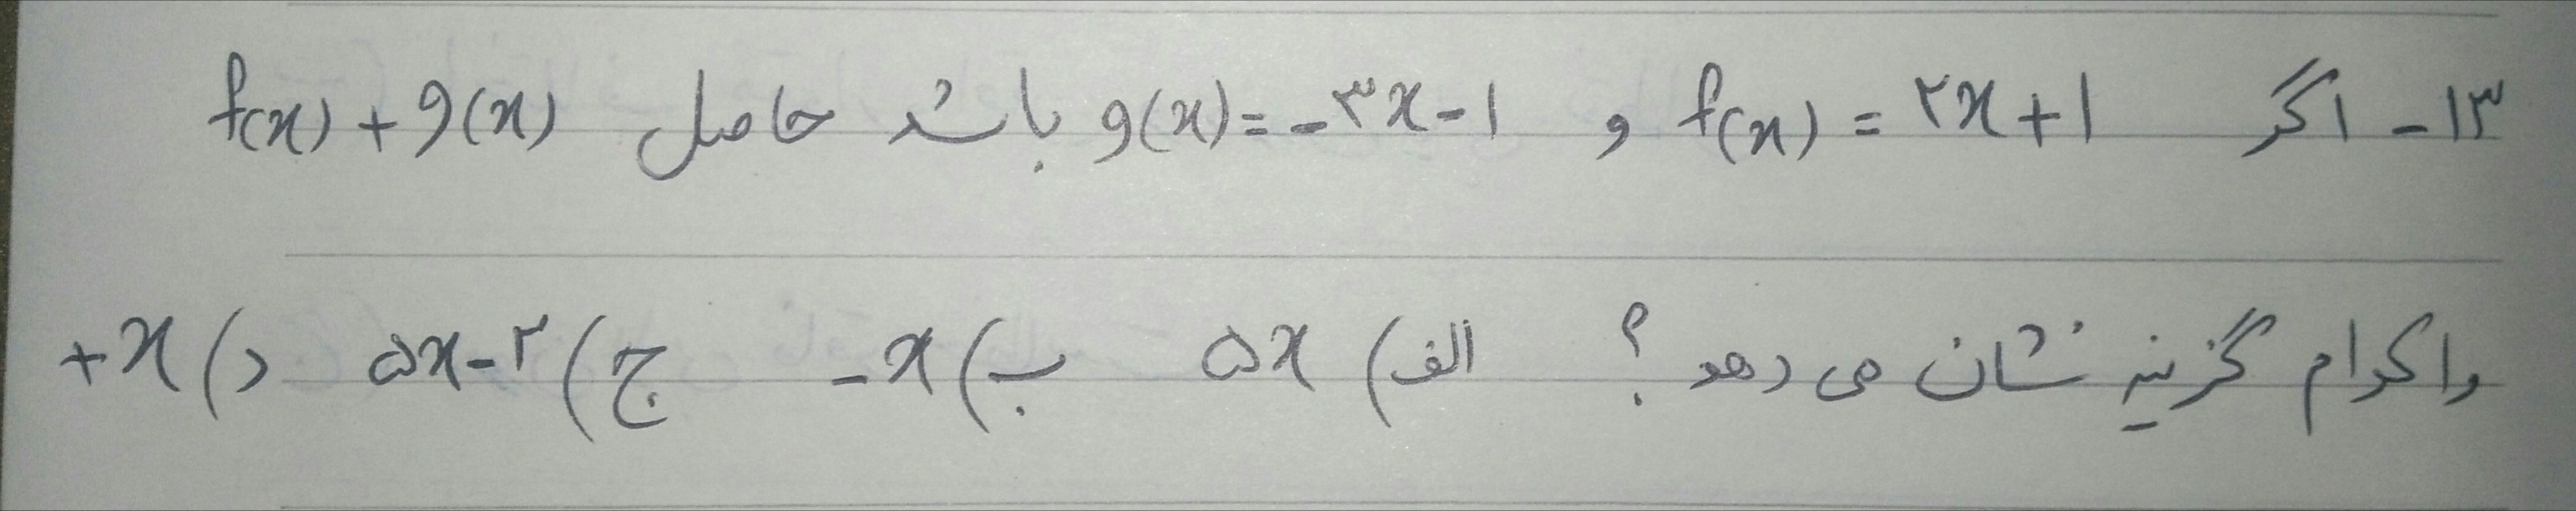 ۱۳- اگر f(x) = ۲x+۱ و g(x) = -۳x-۱ باشد حاصل f(x) + g(x)
را کدام گزینه نشان می دهد؟ الف) ۵x ب) -x ج) ۵x-۲ د) +x